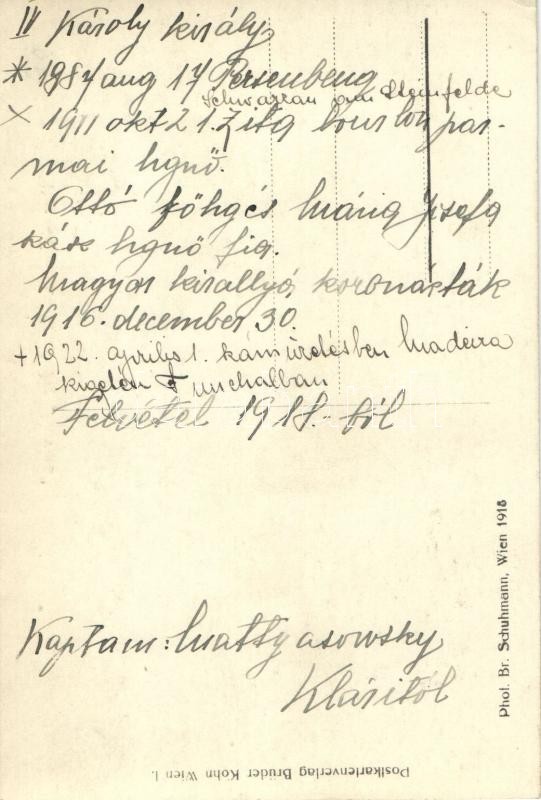 IV Károly király
* 1987 aug 17 Persenbeug
Schwarzau am Steinfelde
× 1911 okt 21. Zita bourbon par-
mai hgnő.
Ottó főhgés Mária Jozefa
szász hgnő fia.
Magyar királlyá koronázták
1916. december 30.
+ 1922. április 1. száműzetésben Madeira
szigetén Funchalban
Felvétel 1918.-ból
Kaptam: Mattyasowsky
Kláritól
Phot. Br. Schuhmann, Wien 1918
Postkartenverlag Brüder Kohn Wien I.